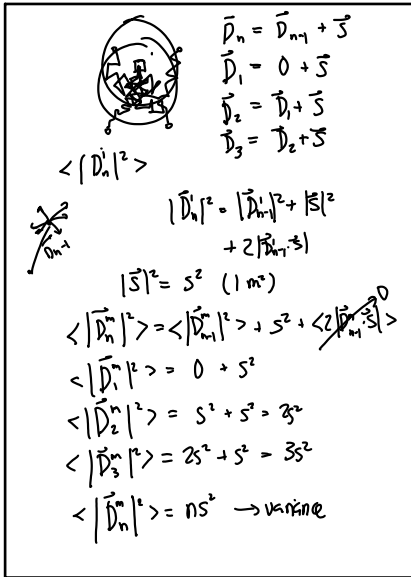 D⃗ₙ = D⃗ₙ₋₁ + s⃗
D⃗₁ = 0 + s⃗
D⃗₂ = D⃗₁ + s⃗
D⃗₃ = D⃗₂ + s⃗
<|D⃗ₙⁱ|²>
Dₙ₋₁
|D⃗ₙⁱ|² = |D⃗ⁱₙ₋₁|² + |s⃗|²
+ 2|D⃗ⁱₙ₋₁·s⃗|
|s⃗|² = s² (1 m²)
<|D⃗ₙᵐ|²> = <|D⃗ᵐₙ₋₁|²> + s² + <2|D⃗ᵐₙ₋₁·s⃗|> 0
<|D⃗₁ᵐ|²> = 0 + s²
<|D⃗₂ᵐ|²> = s² + s² = 2s²
<|D⃗₃ᵐ|²> = 2s² + s² = 3s²
<|D⃗ₙᵐ|²> = ns² → variance